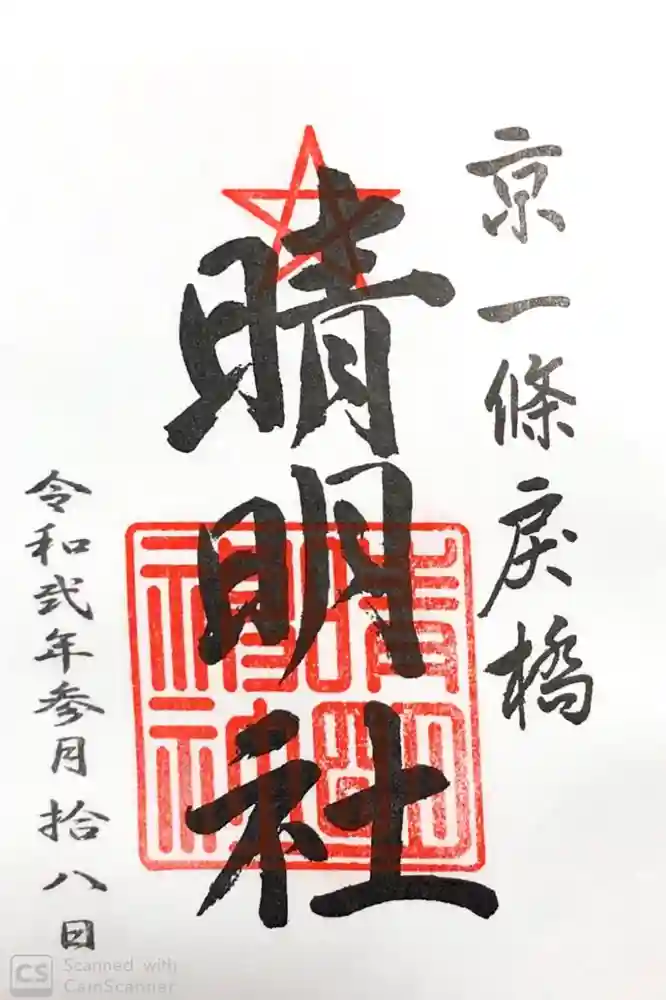 京一條戻橋
晴明社
令和弐年参月拾八日
晴明
神社
CS Scanned with
CamScanner